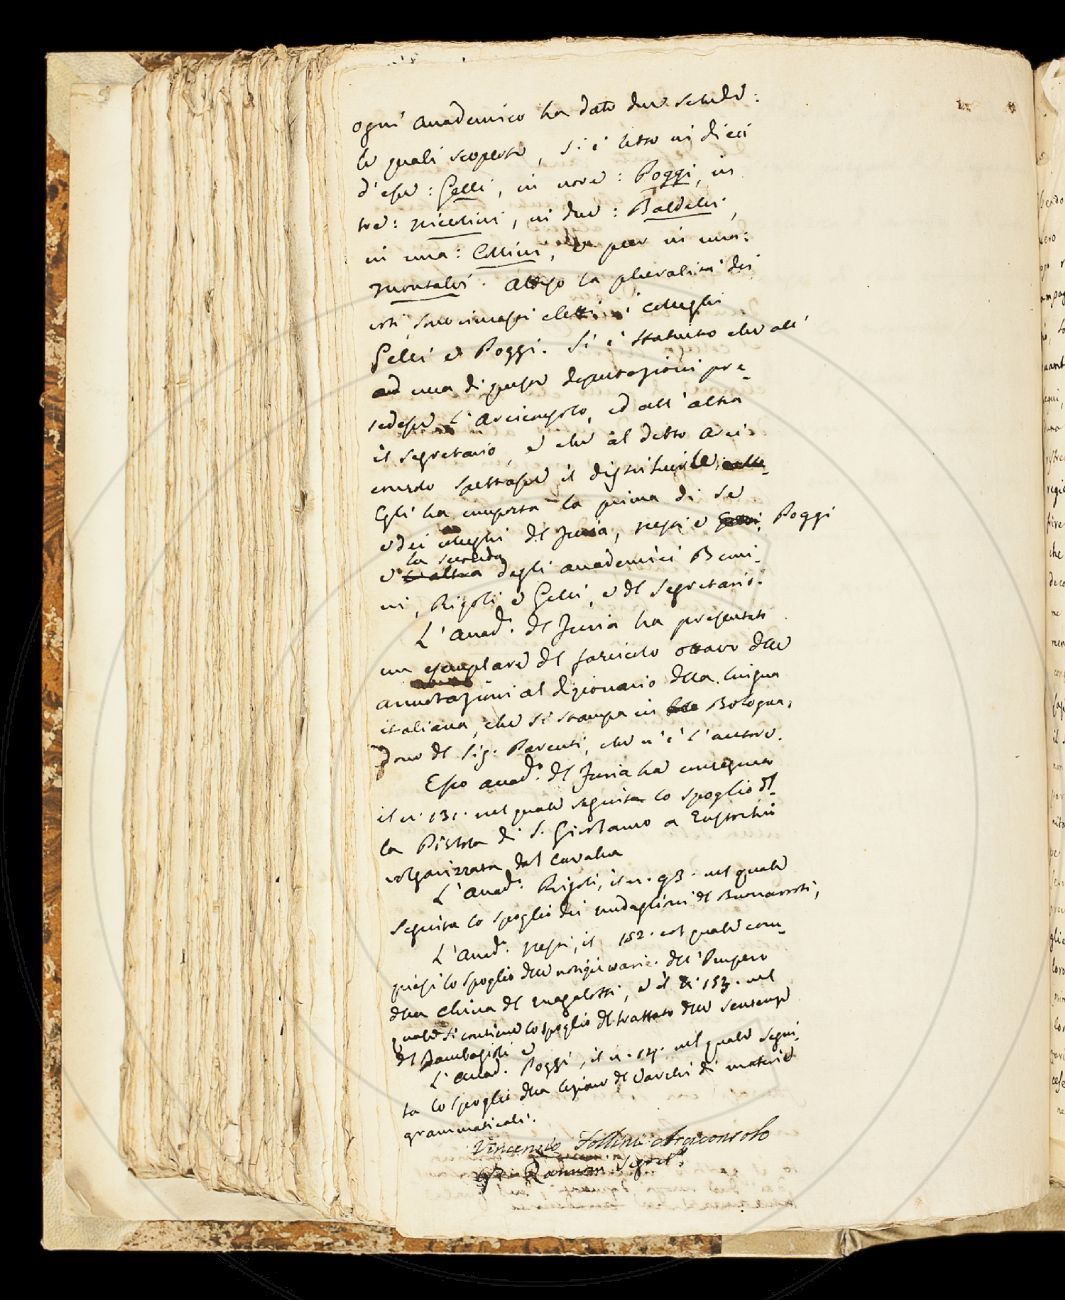 ogni Accademico ha dato due schede:
le quali scoperte, si è letto in dieci
d'esse: Gelli, in nove: Poggi, in
tre: Niccolini, in due: Baldelli,
in una: Collini, e pur in una:
Montalvi. Atteso la pluralità dei
voti, sono rimasti eletti i colleghi
Gelli e Poggi. Si è statuito che all'
ad una di queste deputazioni pre-
sedesse l'Arciconsolo, ed all'altra
il segretario, e che al detto Arci-
consolo spettasse il distribuirle
Egli ha composta la prima di se
e dei colleghi del Furia, Nesti e Poggi
e la seconda degli accademici Benci-
ni, Rigoli e Gelli, e del segretario.
L'Accad. del Furia ha presentati
un esemplare del fascicolo ottavo delle
annotazioni al dizionario della lingua
italiana, che si stampa in Bologna,
dono del Sig. Parenti, che n'è l'autore.
Esso accad. del Furia ha consegnato
il n. 131. nel quale seguita lo spoglio del
la Pistola di S. Girolamo a Eustochio
volgarizzata dal Cavalca
L'Accad. Rigoli, il n. 93. nel quale
seguita lo spoglio dei medaglioni del Buonarroti,
L'Accad. Nesti, il 152. col quale com-
pie lo spoglio delle notizie varie dell'Impero
della China del Magalotti, e il 153. nel
quale si contiene lo spoglio del trattato delle sentenze
del Bambagioli e
L'Accad. Poggi, il n. 14. nel quale segui-
ta lo spoglio della lezione del Varchi di materie
grammaticali.
Vincenzio Follini Arciconsolo
Zannoni Segret.